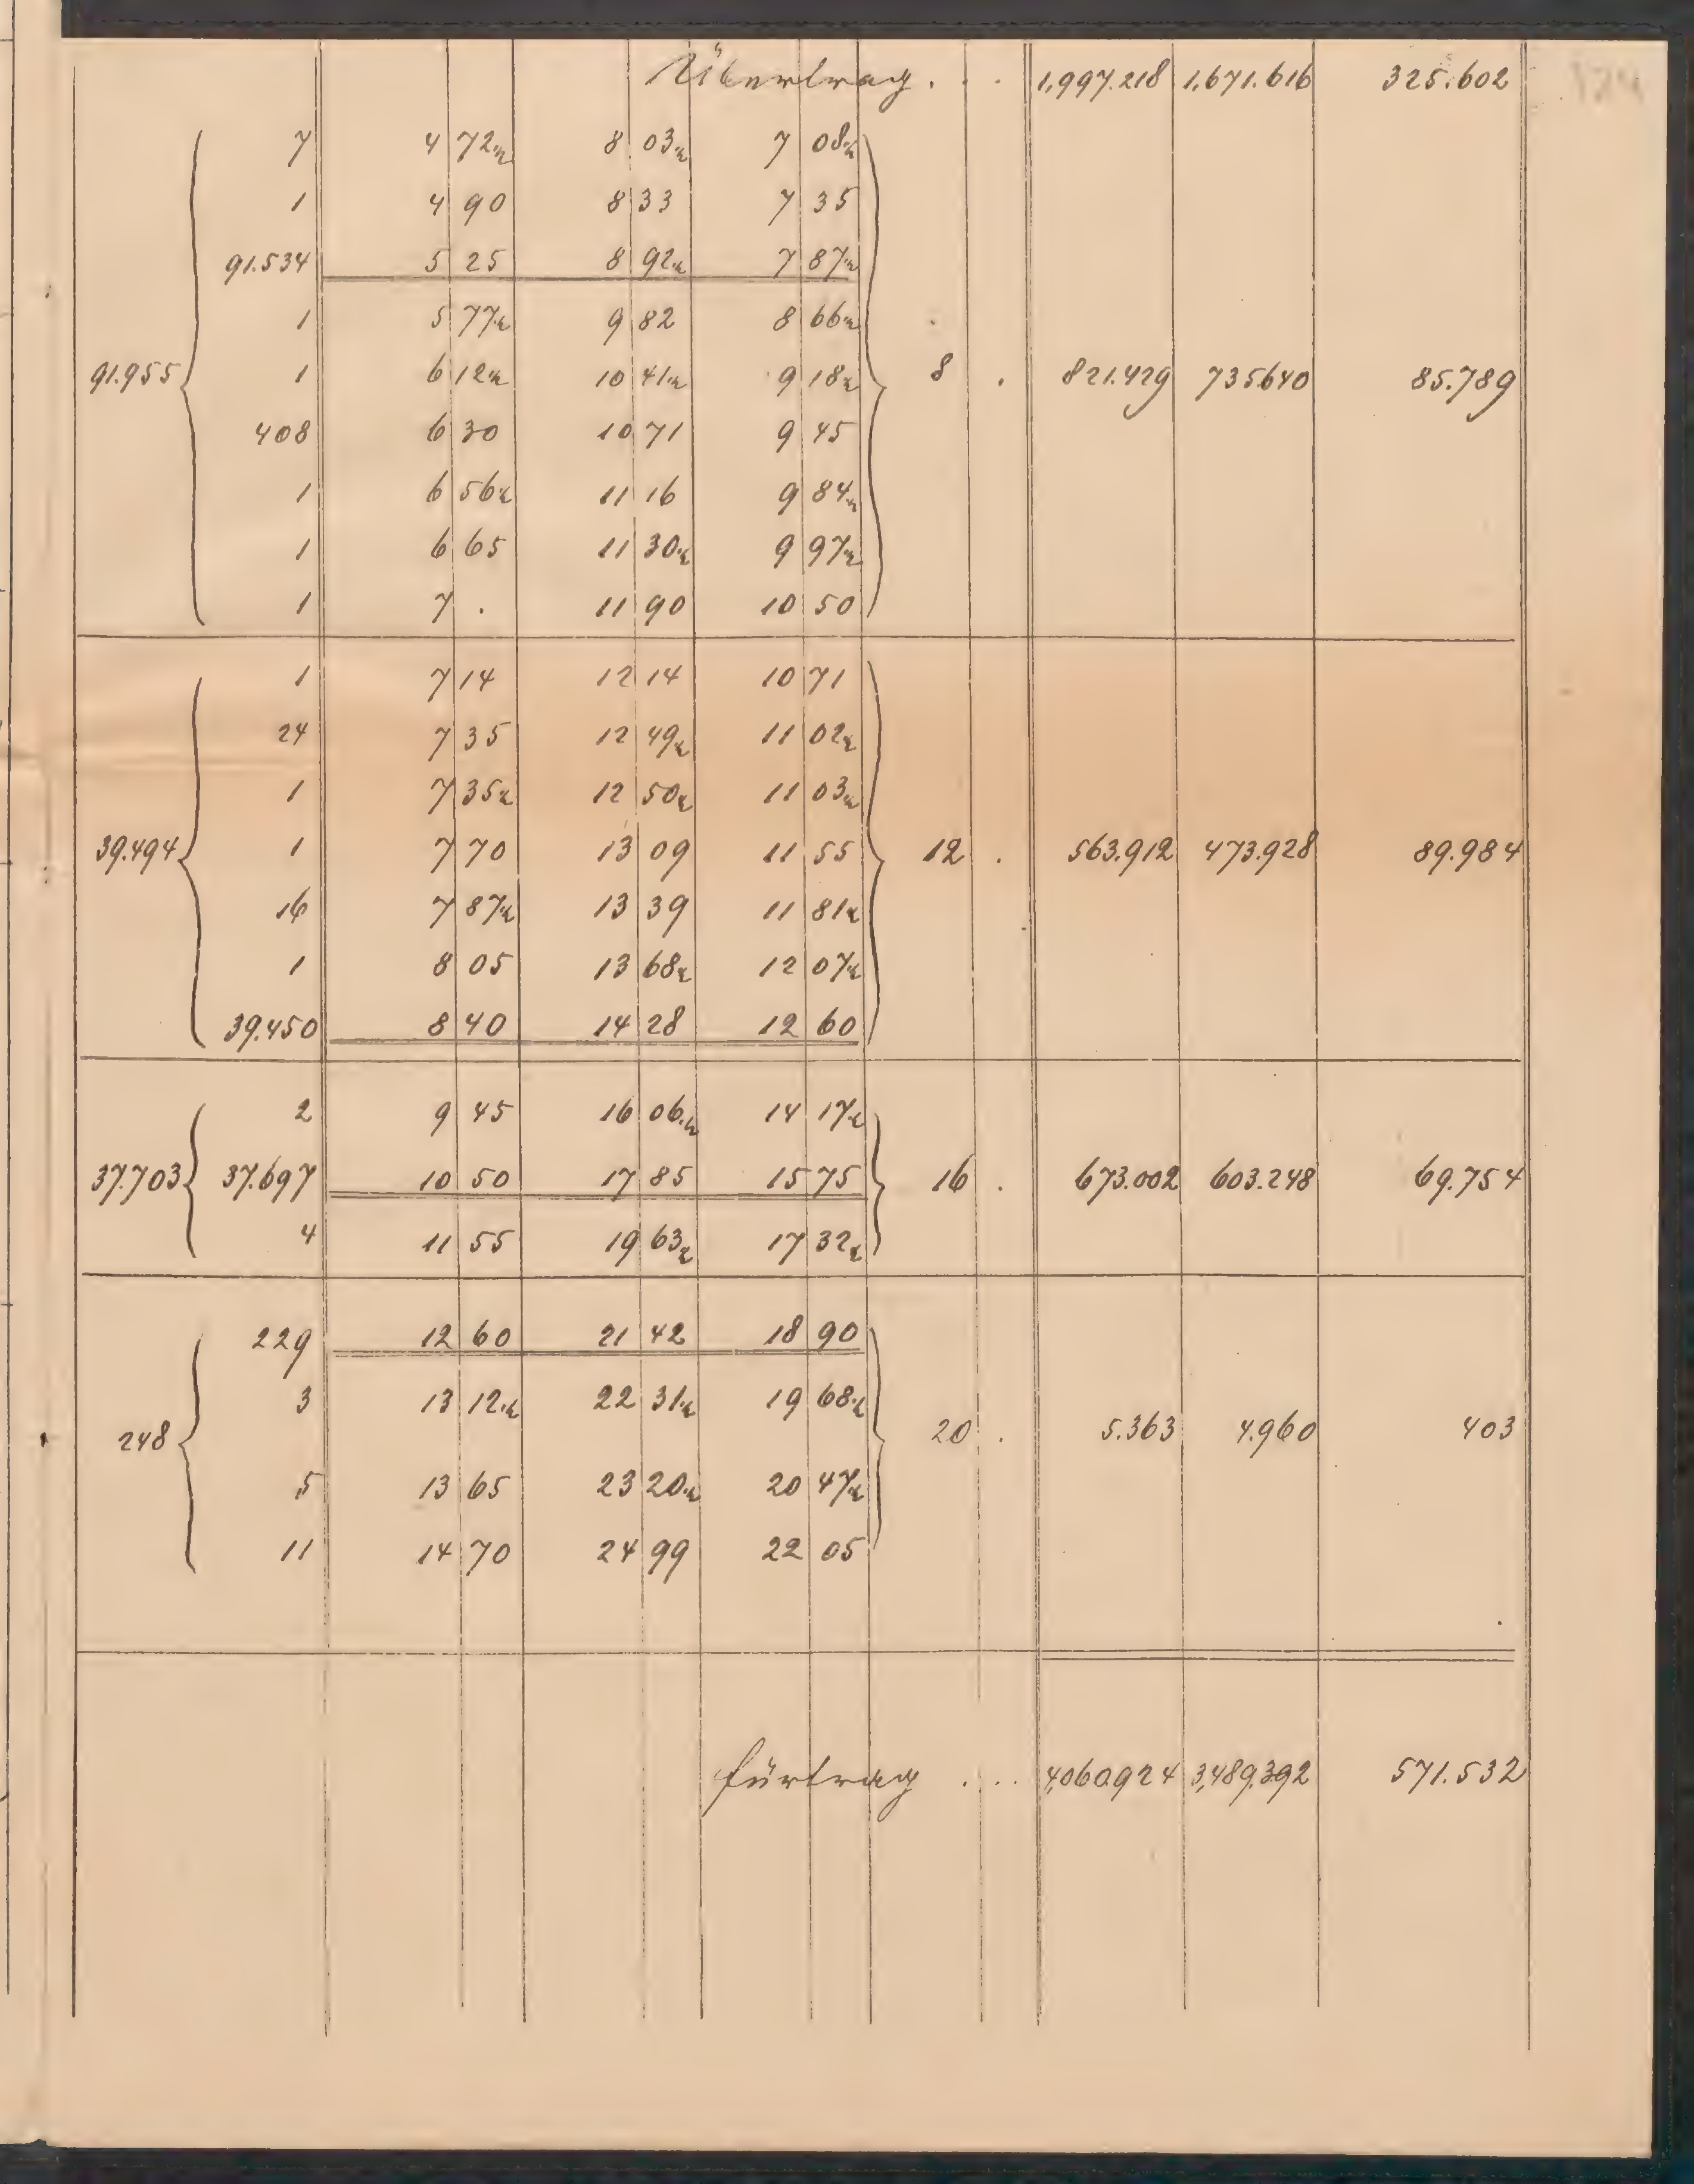 Übertrag . . . 1,997.218 1,671.616 325.602
7 4 72.½ 8 03.½ 7 08.½
1 4 90 8 33 7 35
91.534 5 25 8 92.½ 7 87.½
1 5 77.½ 9 82 8 66.½
91.955 1 6 12.½ 10 41.½ 9 18.½ 8 . 821.429 735.640 85.789
408 6 30 10 71 9 45
1 6 56.½ 11 16 9 84.½
1 6 65 11 30.½ 9 97.½
1 7 . 11 90 10 50
1 7 14 12 14 10 71
24 7 35 12 49.½ 11 02.½
1 7 35.½ 12 50.½ 11 03.½
39.494 1 7 70 13 09 11 55 12 . 563.912 473.928 89.984
16 7 87.½ 13 39 11 81.½
1 8 05 13 68.½ 12 07.½
39.450 8 40 14 28 12 60
2 9 45 16 06.½ 14 17.½
37.703 37.697 10 50 17 85 15 75 16 . 673.002 603.248 69.754
4 11 55 19 63.½ 17 32.½
229 12 60 21 42 18 90
3 13 12.½ 22 31.½ 19 68.½
248 20 . 5.363 4.960 403
5 13 65 23 20.½ 20 47.½
11 14 70 24 99 22 05
Fürtrag . . . . 4,060.924 3,489.392 571.532